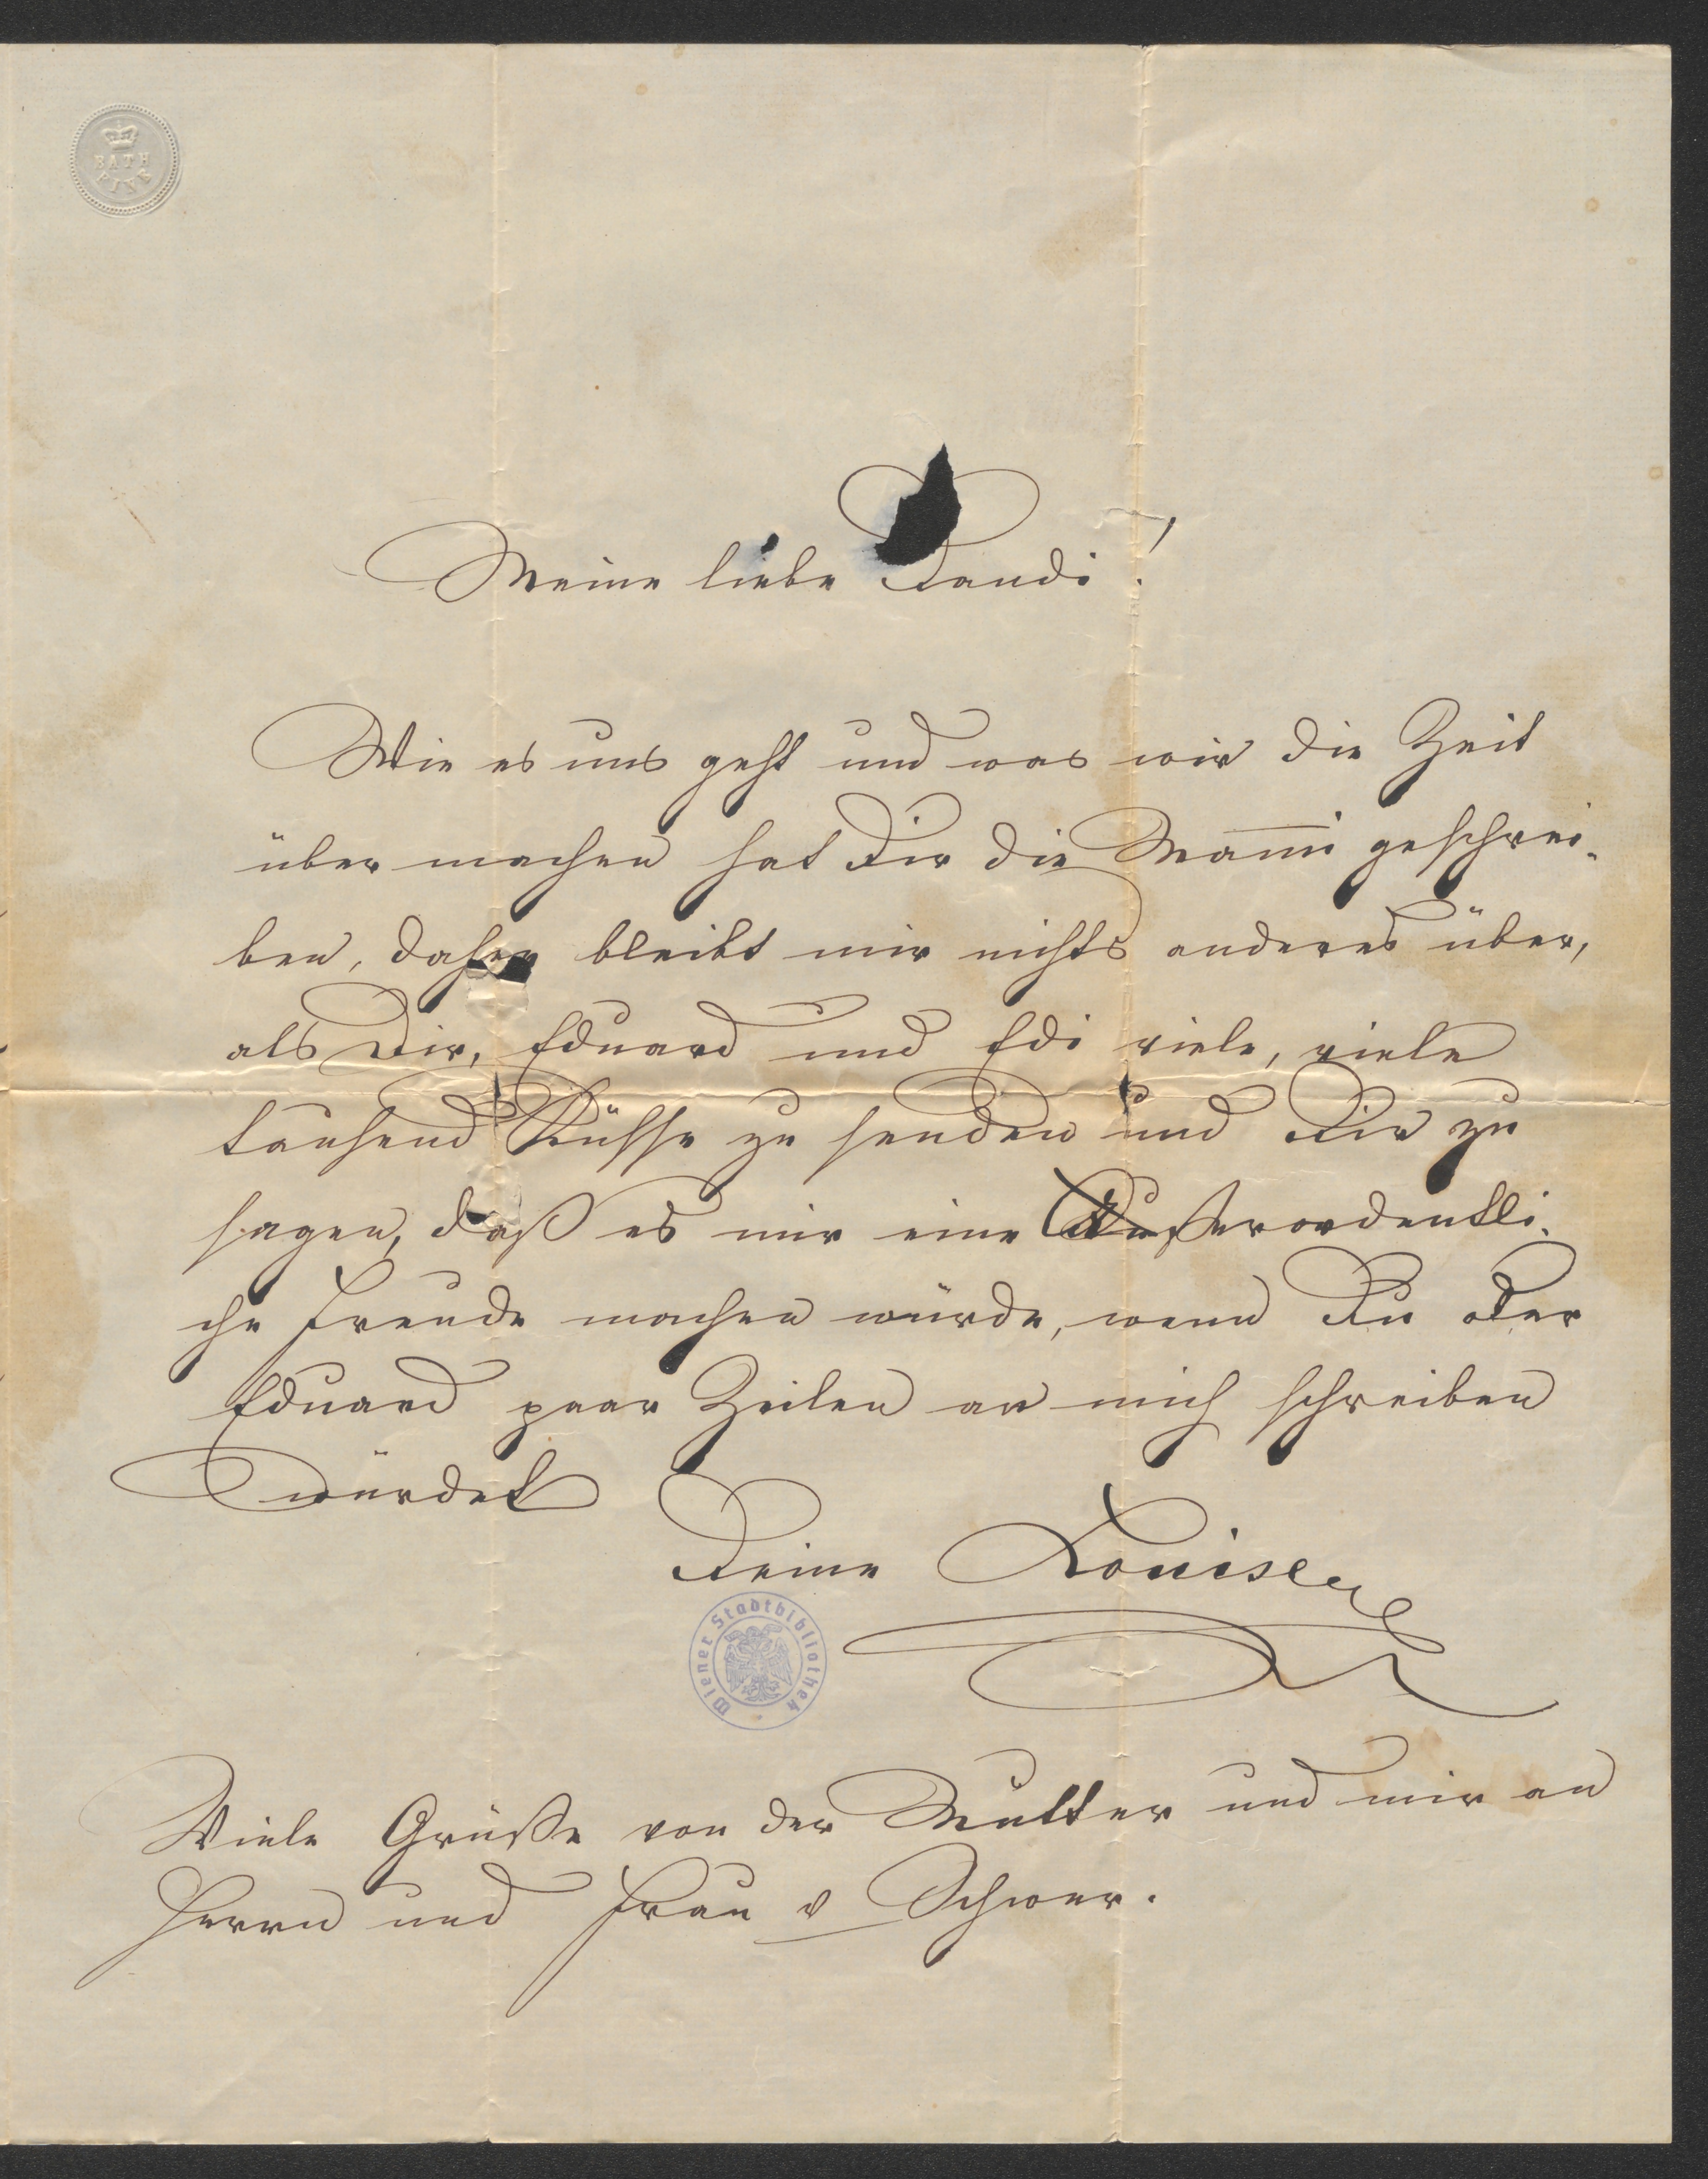 BATH
FINE
Meine liebe Tandi!
Wie es uns geht und was wir die Zeit
über machen hat Dir die Mam̄i geschrei-
ben, daher bleibt mir nichts anderes über,
als Dir, Eduard und Edi viele, viele
tausend Küsse zu senden und Dir zu
sagen, daß es mir eine außerordentli-
che Freude machen würde, wenn Du oder
Eduard paar Zeilen an mich schreiben
würdet
Deine Louise
Wiener Stadtbibliothek
Viele Grüße von der Mutter und mir an
Herrn und Frau v Schwer.